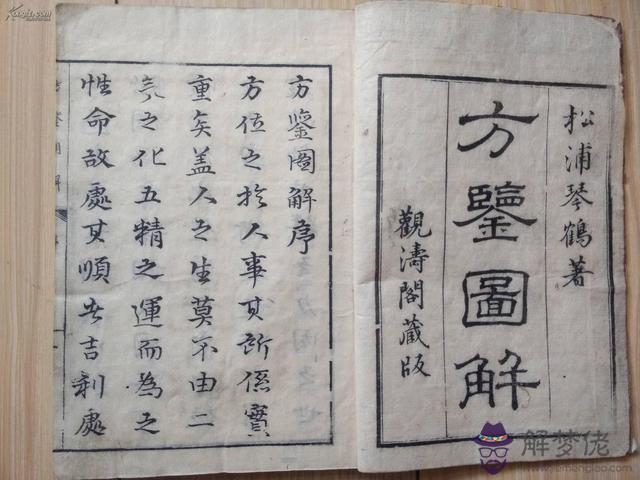 松浦琴鶴著
方鑒圖解
觀濤閣藏版
方鑒圖解序
方位之於人事其所係實
重矣蓋人之生莫不由二
氣之化五精之運而為之
性命故處其順者吉利處
解梦佬